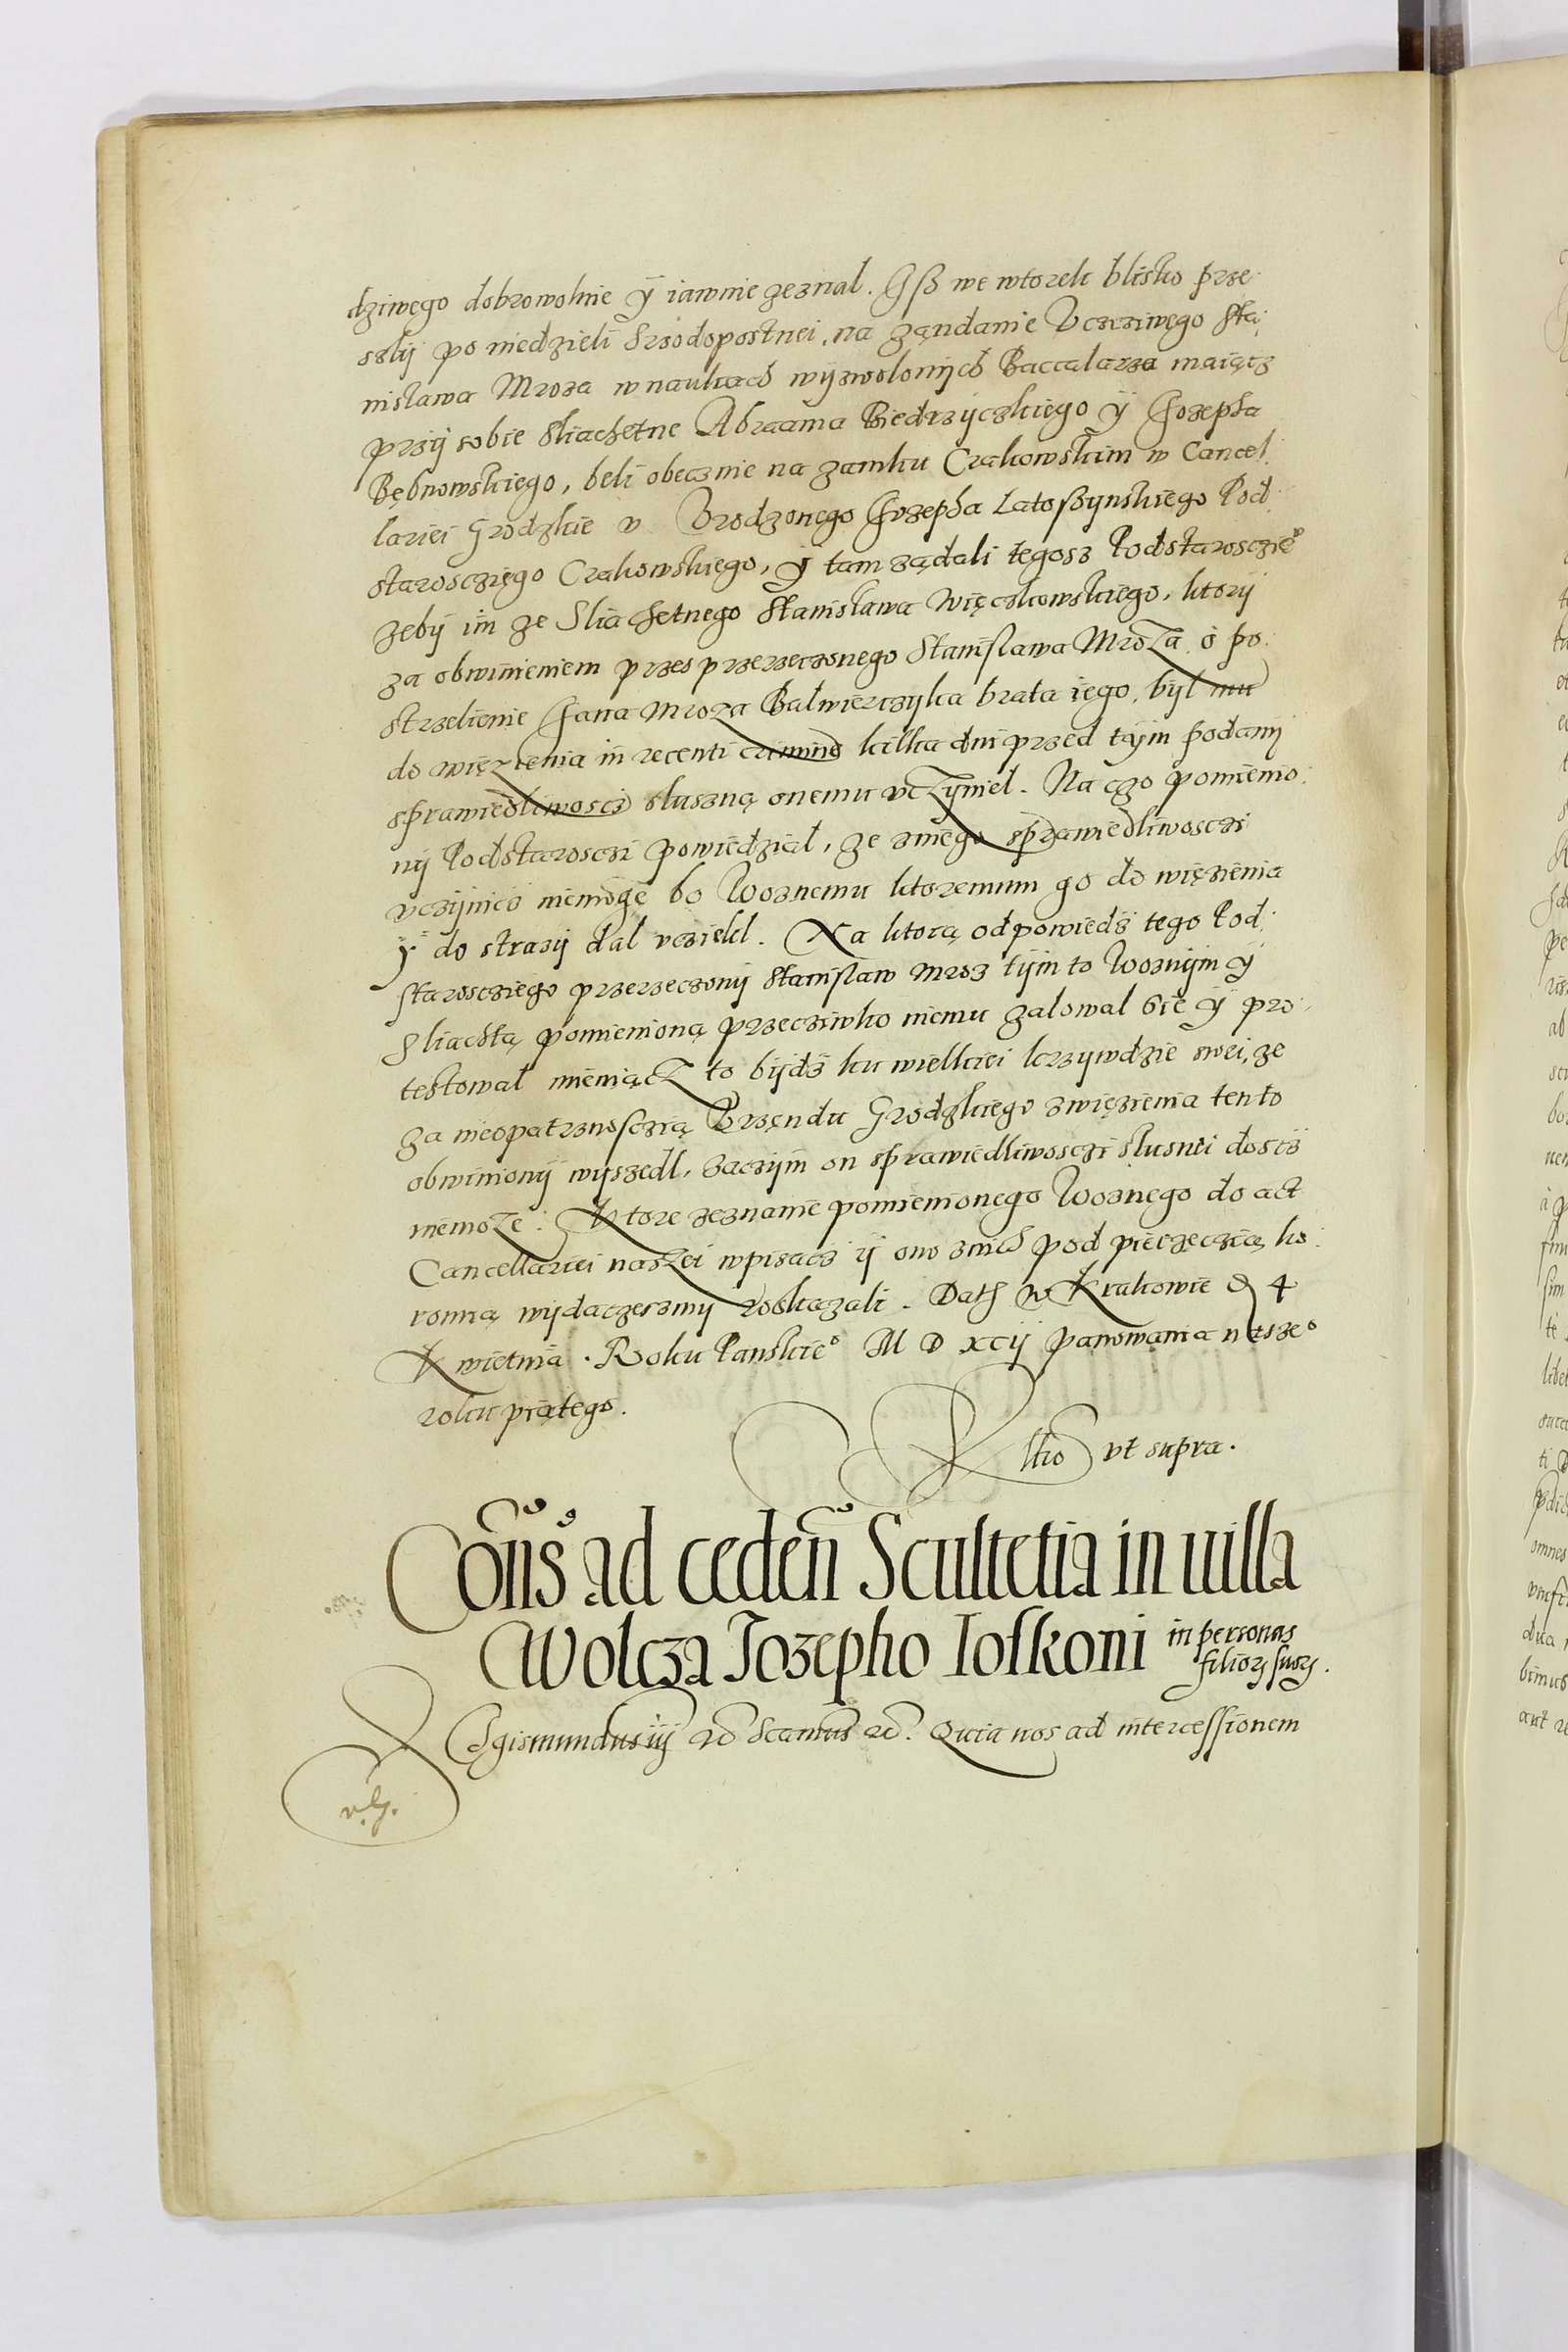 dziwego dobrowolnie ÿ iawnie zeznal. Iß we wtorek blisko prze:
szlÿ po niedzieli srzodopostnei, na ządanie Vczciwego Sta:
nislawa Mroza w naukach wÿzwolonÿch Baccalarza maiącz
przÿ sobie Sliachetne Abraama Biedrzyczkiego ÿ Jozepha
Bębnowskiego, beli obecznie na zamku Crakowskim w Cancel:
lariei Grodzkie v Vrodzonego Jozepha Latoßynskiego Pod:
starosczięgo Crakowskiego, ÿ tam ządali tegosz Podstaroscziego
zebÿ im ze Sliachetnego Stanislawa Więczkowskiego, ktorÿ
za obwinieniem przes przerzeczonego Stanislawa Mroza o po:
strzelienie Jana Mroza Balwierczyka brata iego, bÿl mu
do więzienia in recenti crimine kilka dni przed tÿm podanÿ
sprawiedliwoscz sluszną onemu vczÿniel. Na czo pomienio:
nÿ Podstarosczi powiedzial, ze zniego sprawiedliwosczi
vczÿnicz niemoge bo Woznemu ktoremum go do więzienia
ÿ do strazÿ dal vciekl. Na ktorą odpowiedz tego Pod:
starosczięgo przerzeczonÿ Stanislaw Mroz tÿm to Woznÿm ÿ
Sliachtą pomienioną przecziwko niemu zalowal sie ÿ pro:
testowal mieniącz to bÿdz ku wielkiei krzywdzie swei, ze
za nieopatrznosczią Vrzędu Grodzkiego zwięzienia tento
obwinionÿ wÿszedl, zaczÿm on sprawiedliwosczi slusnei dosciz
niemoze. Ktore zeznanie pomienionego Woznego do act
Cancellariei naszei wpisacz ÿ ono znich pod pieczęczią ko:
ronną wÿdaczesmÿ roskazali. Dath w Krakowie D 4
Kwietnia. Roku Panskieo M D xcij panowania naszeo
roku piątego.
Rltio vt supra.
Cons ad ceden Scultetia in uilla
Wolcza Jozepho Ioskoni in personas
filiorz suorz.
Sigismundus iij etc Scamus etc. Quia nos ad intercessionem